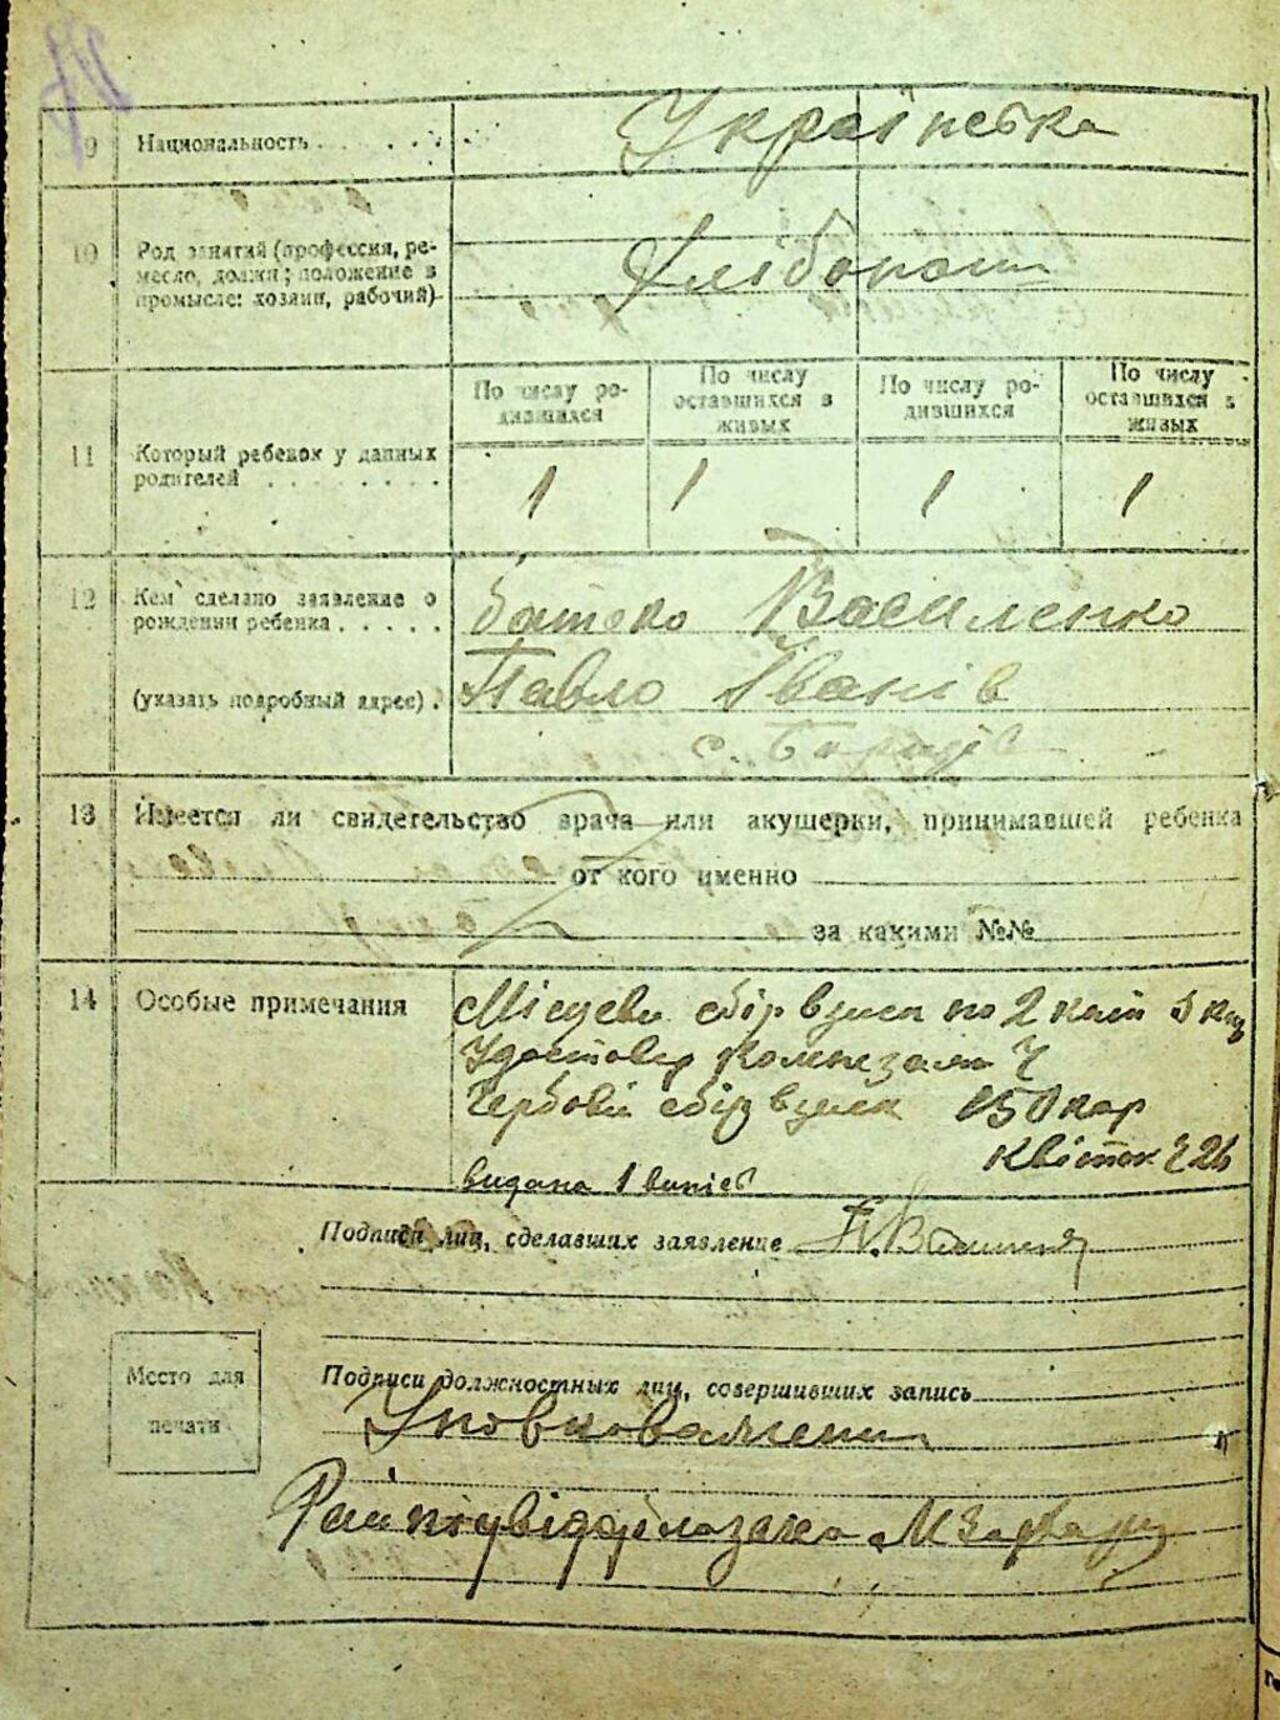 9 Национальность . . . . . . Українська
10 Род занятий (профессия, ре-
месло, должн; положение в
промысле: хозяин, рабочий)
Хлібороби
По числу ро-
дившихся
По числу
оставшихся в
живых
По числу ро-
дившихся
По числу
оставшихся в
живых
11 Который ребенок у данных
родителей . . . . . . . .
1 1 1 1
12 Кем сделано заявление о
рождении ребенка . . . . .
(указать подробный адрес) .
батько Василенко
Павло Іванів
с.
13 Имеется ли свидетельство врача или акушерки, принимавшей ребенка
от кого именно
за какими №№
14 Особые примечания
Місцеви збір взиск по 2 кат
Удостовер
Гербовий збір взиск 150 кар
Квіток 226
видана 1 випис
Подписи лиц, сделавших заявление
Подписи должностных лиц, совершивших запись
Место для
печати